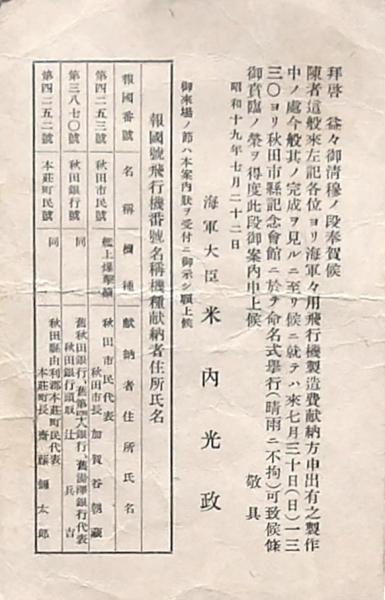 拜啓 益々御清穆ノ段奉賀候
陳者這般來左記各位ヨリ海軍々用飛行機製造費獻納方申出有之製作
中ノ處今般其ノ完成ヲ見ルニ至リ候ニ就テハ來七月三十日(日)一三
三〇ヨリ秋田市縣記念會館ニ於テ命名式擧行(晴雨ニ不拘)可致候條
御賁臨ノ榮ヲ得度此段御案内申上候 敬具
昭和十九年七月二十二日
海軍大臣 米內光政
御來場ノ節ハ本案內狀ヲ受付ニ御示シ願上候
報國號飛行機番號名稱機種獻納者住所氏名
報國番號 名稱 機種 獻納者住所氏名
第四二五三號 秋田市民號 艦上爆擊機 秋田市民代表
秋田市長 加賀谷朝藏
第三八七〇號 秋田銀行號 同 舊秋田銀行、舊第四十八銀行、舊湯澤銀行代表
秋田銀行頭取 辻兵吉
第四二五二號 本莊町民號 同 秋田縣由利郡本莊町民代表
本莊町長 齋藤彌太郎